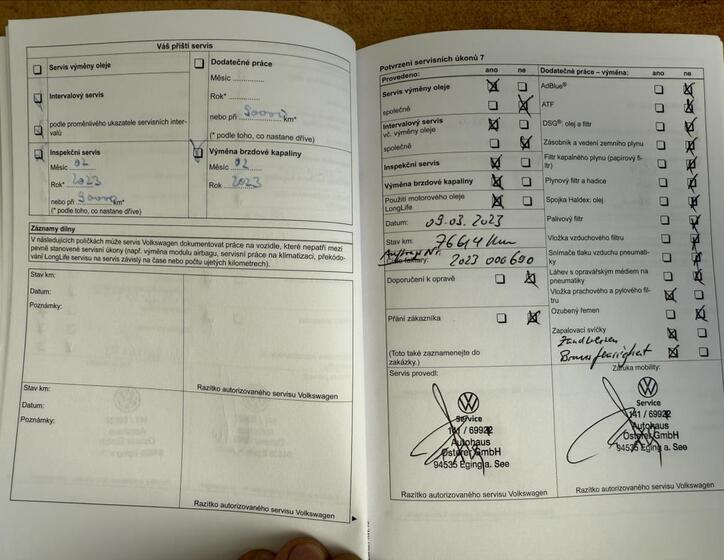 Váš příští servis
Servis výměny oleje
Intervalový servis
podle proměnlivého ukazatele servisních inter-
valů
Dodatečné práce
Měsíc
Rok*
nebo při 90000 km*
(* podle toho, co nastane dříve)
Inspekční servis
Měsíc 02
Rok* 2023
nebo při 90000 km*
(* podle toho, co nastane dříve)
Výměna brzdové kapaliny
Měsíc 02
Rok 2023
Záznamy dílny
V následujících políčkách může servis Volkswagen dokumentovat práce na vozidle, které nepatří mezi
pevně stanovené servisní úkony (např. výměna modulu airbagu, servisní práce na klimatizaci, překódo-
vání LongLife servisu na servis závislý na čase nebo počtu ujetých kilometrů).
Stav km:
Datum:
Poznámky:
Razítko autorizovaného servisu Volkswagen
Stav km:
Datum:
Poznámky:
Razítko autorizovaného servisu Volkswagen
Potvrzení servisních úkonů 7
Provedeno: ano ne
Servis výměny oleje
společně
Intervalový servis
vč. výměny oleje
společně
Inspekční servis
Výměna brzdové kapaliny
Použití motorového oleje
LongLife
Datum: 09.03.2023
Stav km: 76614 km
Auftrag Nr.
faktury: 2023 000690
Doporučení k opravě
Přání zákazníka
(Toto také zaznamenejte do
zakázky.)
Dodatečné práce – výměna: ano ne
AdBlue®
ATF
DSG®: olej a filtr
Zásobník a vedení zemního plynu
Filtr kapalného plynu (papírový fi-
ltr)
Plynový filtr a hadice
Spojka Haldex: olej
Palivový filtr
Vložka vzduchového filtru
Snímače tlaku vzduchu pneumati-
ky
Láhev s opravářským médiem na
pneumatiky
Vložka prachového a pylového fil-
tru
Ozubený řemen
Zapalovací svíčky
Zündkerzen
Bremsflüssigkeit
Servis provedl:
Service
141 / 69922
Autohaus
Österer GmbH
94535 Eging a. See
Razítko autorizovaného servisu Volkswagen
Záruka mobility:
Service
141 / 69922
Autohaus
Österer GmbH
94535 Eging a. See
Razítko autorizovaného servisu Volkswagen